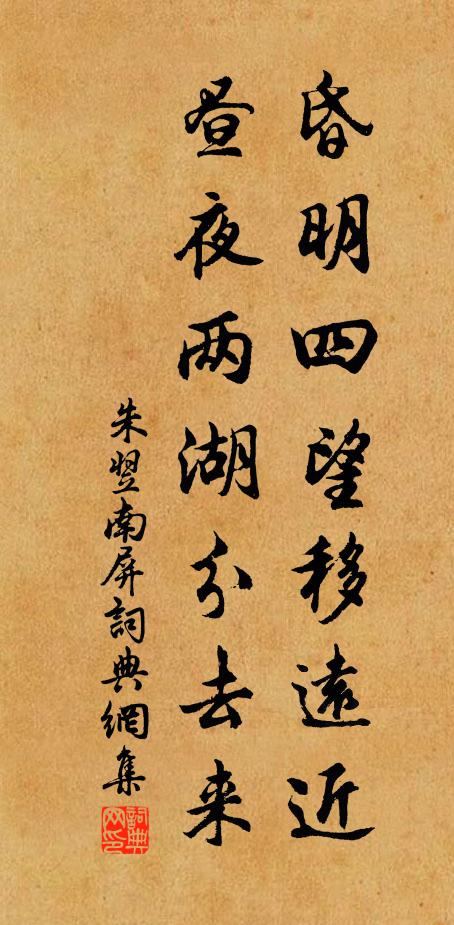 昏明四望移遠近
昼夜两湖分去来
朱翌南屏詞典網集
詞典网印